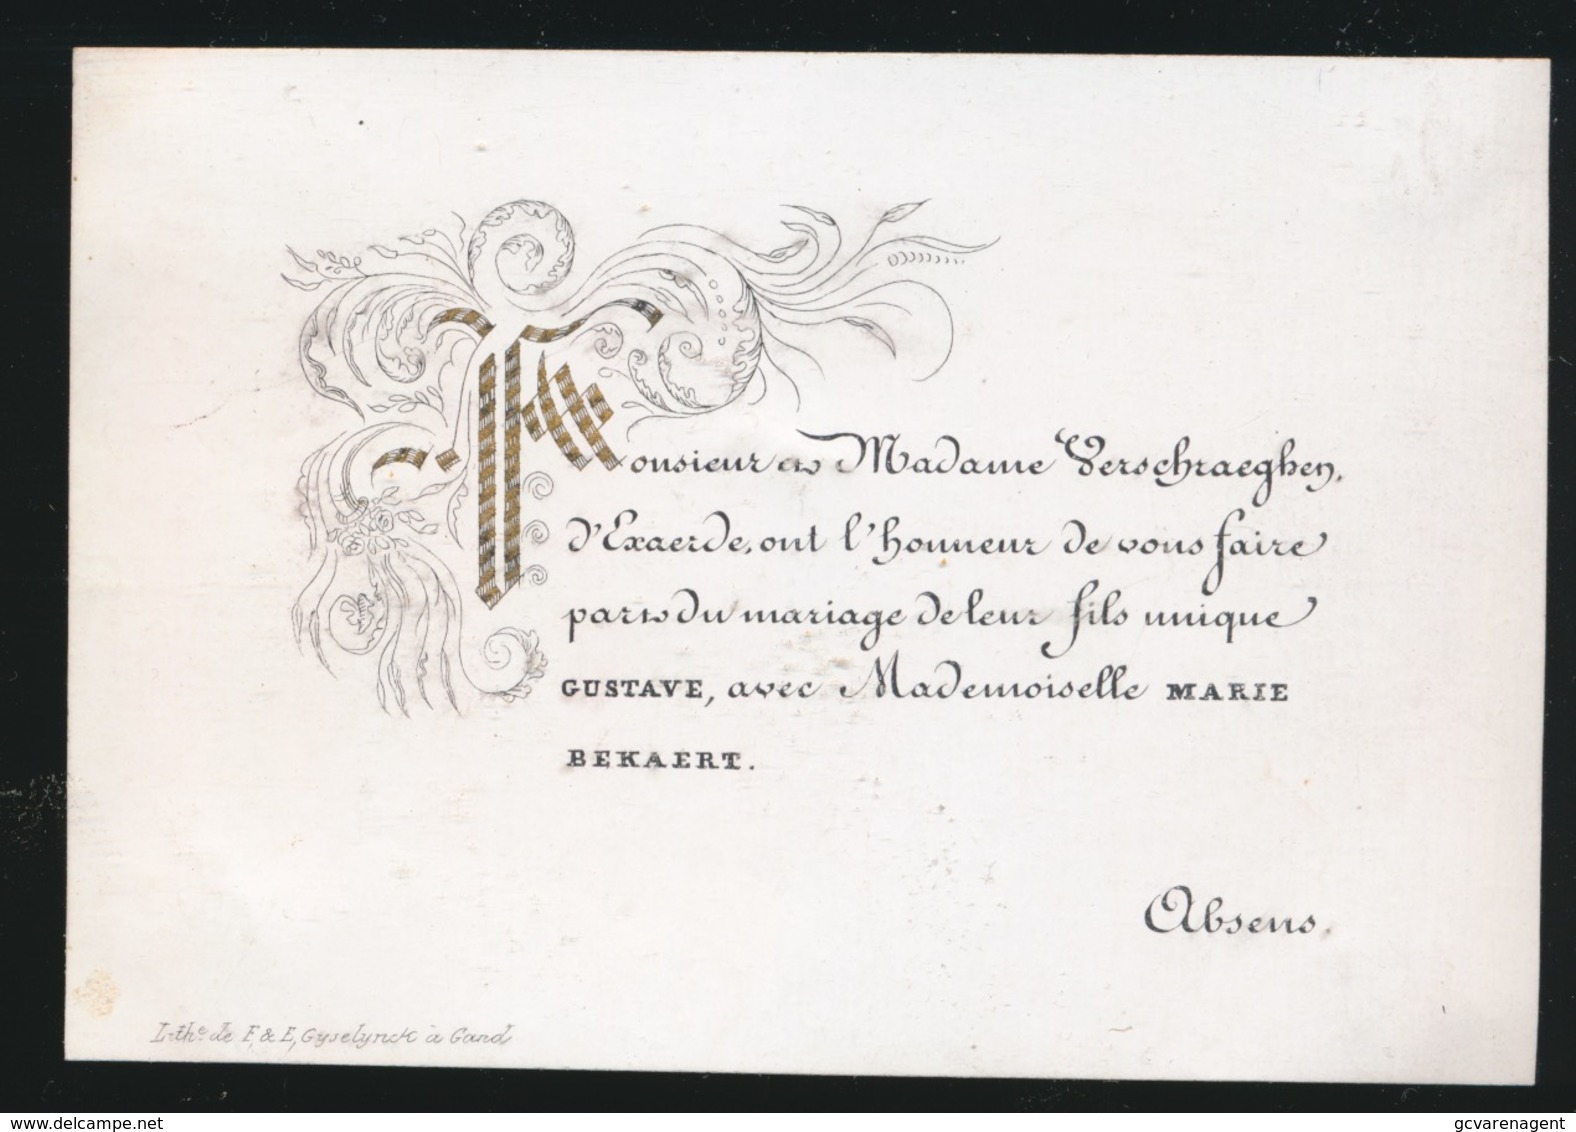 Monsieur et Madame Verschraeghen,
d'Exaerde, ont l'honneur de vous faire
part du mariage de leur fils unique
GUSTAVE, avec Mademoiselle MARIE
BEKAERT.
Absens.
Lithe. de F. & E, Gyselynck à Gand
www.delcampe.net
gcvarenagent